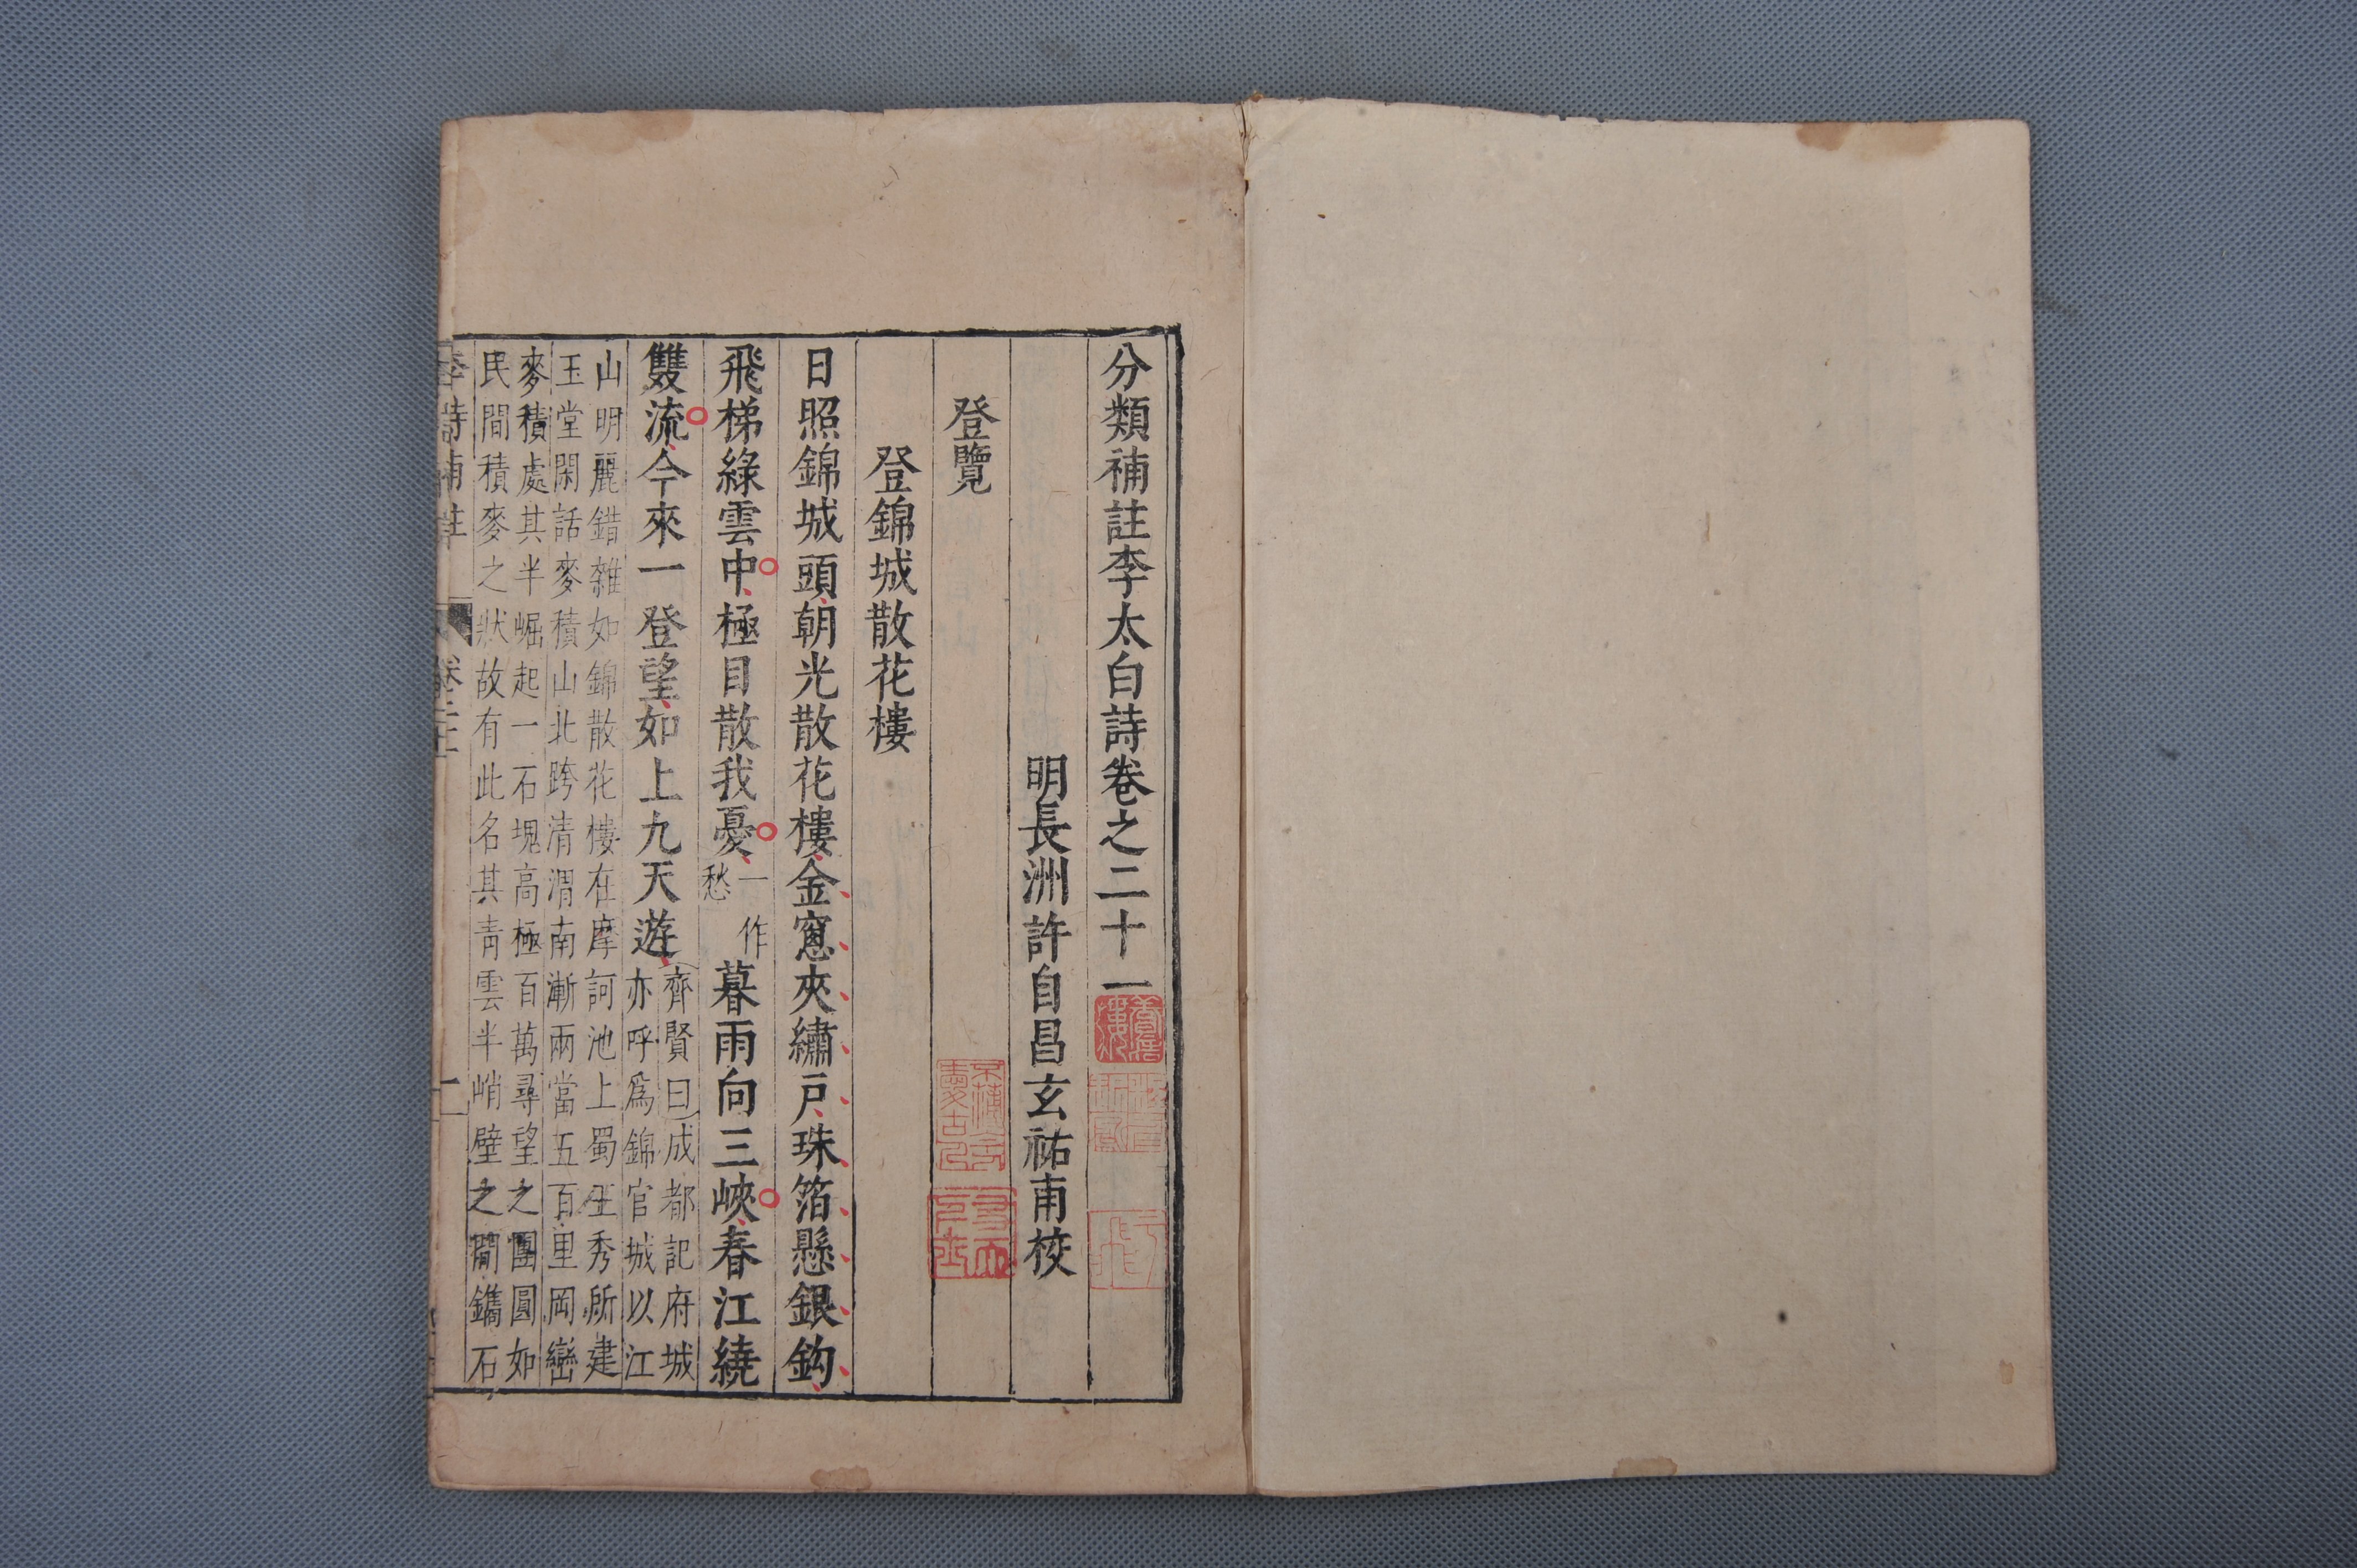 分類補註李太白詩卷之二十一
明長洲許自昌玄祐甫校
登覽
登錦城散花樓
日照錦城頭朝光散花樓金窻夾繡戶珠箔懸銀鈎
飛梯綠雲中極目散我憂一作愁暮雨向三峽春江繞
雙流今來一登望如上九天遊齊賢曰成都記府城
亦呼爲錦官城以江
山明麗錯雜如錦散花樓在摩訶池上蜀王秀所建
玉堂閑話麥積山北跨清渭南漸兩當五百里岡巒
麥積處其半崛起一石塊高極百萬尋望之團圓如
民間積麥之狀故有此名其青雲半峭壁之間鐫石
李詩補註 卷二十一 一